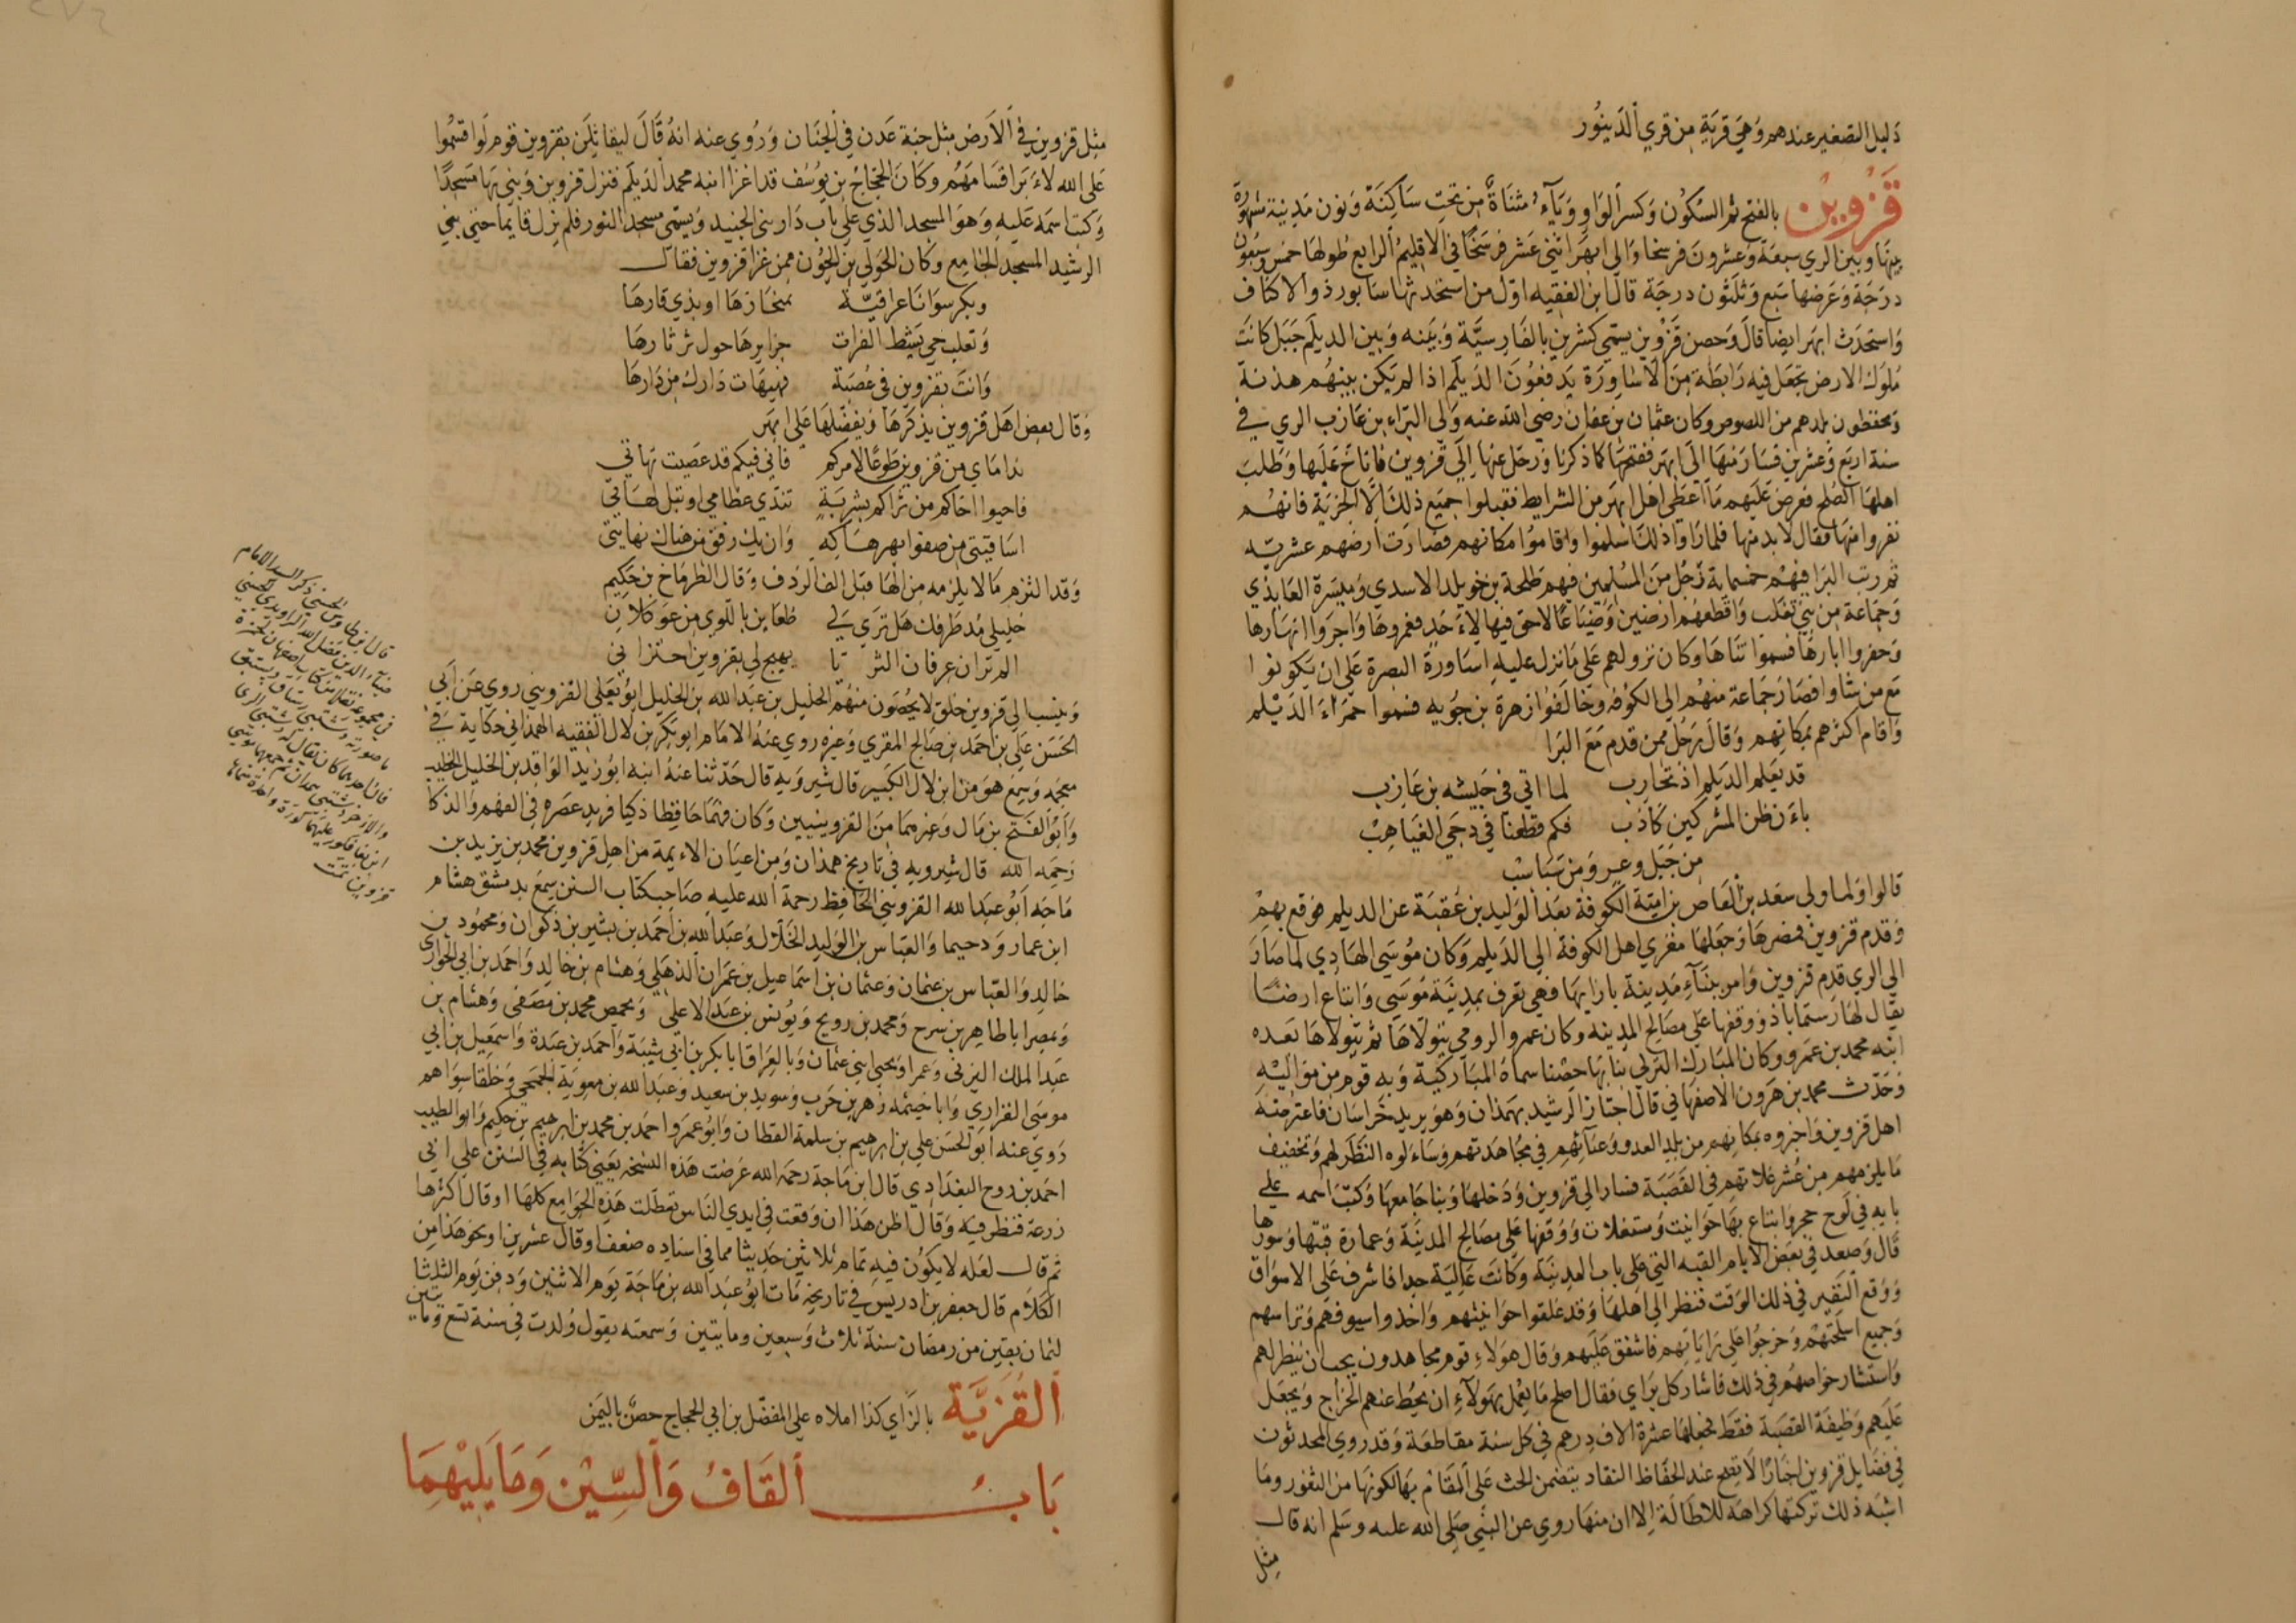 دليل التصغير عندهم وهي قرية من قري الدينور
قَزْوِيْن بالفتح ثم السكون وكسر الواو وياء مثناة من تحت ساكنة ونون مدينة مشهورة
بينها وبين الري سبعة وعشرون فرسخا والي ابهر اثني عشر فرسخا في الاقليم الرابع طولها خمس وسبعون
درجة وعرضها سبع وثلثون درجة قال ابن الفقيه اول من استحدثها سابور ذو الاكتاف
واستحدث ابهر ايضا قال وحصن قزوين يسمي كشرين بالفارسية وبينه وبين الديلم جبل كانت
ملوك الارض تجعل فيه رابطة من الاساورة يدفعون الديلم اذا لم يكن بينهم هدنة
ويحفظون بلدهم من اللصوص وكان عثمان بن عفان رضي الله عنه ولي البراء بن عازب الري في
سنة اربع وعشرين فسار منها الي ابهر ففتحها كما ذكرنا ورحل عنها الي قزوين فاناخ عليها وطلب
اهلها الصلح فعرض عليهم ما اعطي اهل ابهر من الشرايط فقبلوا جميع ذلك الا الجزية فانهم
نفروا منها فقال لا بد منها فلما راوا ذلك اسلموا واقاموا مكانهم فصارت ارضهم عشرية
ثم رتب البرا فيهم خمسماية رجل من المسلمين فيهم طلحة بن خويلد الاسدي وميسرة العايذي
وجماعة من بني تغلب واقطعهم ارضين وضياعا لاحق فيها لاحد فعمروها واجروا انهارها
وحفروا ابارها فسموا تناها وكان نزولهم علي ما نزل عليه اساورة البصرة علي ان يكونوا
مع من شاوا فصار جماعة منهم الي الكوفة وخالفوا زهرة بن جويه فسموا حمراء الديلم
واقام اكثرهم مكانهم وقال رجل ممن قدم مع البرا
قد يعلم الديلم اذ تحارب لما اتي في جيشه بن عازب
بان ظن المشركين كاذب فكم قطعنا في دجي الغياهب
من جبل وعر ومن سباسب
قالوا ولما ولي سعد بن العاص بن امية الكوفة بعد الوليد بن عقبة عن الديلم فوقع بهم
وقدم قزوين فمصرها وجعلها مغزي اهل الكوفة الي الديلم وكان موسي الهادي لما صار
الي الري قدم قزوين وامر ببناء مدينة بازايها فهي تعرف بمدينة موسي وابتاع ارضا
يقال لها رستماباذ ووقفها علي مصالح المدينة وكان عمرو الرومي يتولاها ثم يتولاها بعده
ابنه محمد بن عمرو وكان المبارك التركي بنا بها حصنا سماه المباركية وبه قوم من مواليه
وحدث محمد بن هرون الاصفهاني قال اجتاز الرشيد بهمذان وهو يريد خراسان فاعترضه
اهل قزوين واخبروه بمكانهم من بلد العدو وعنائهم في مجاهدتهم وساءلوه النظر لهم وتخفيف
ما يلزمهم من عشر غلاتهم في القصبة فسار الي قزوين ودخلها وبنا جامعها وكتب اسمه علي
بابه في لوح حجر وابتاع بها حوانيت ومستغلات ووقفها علي مصالح المدينة وعمارة قبتها وسورها
قال وصعد في بعض الايام القبه التي علي باب المدينة وكانت عالية جدا فاشرف علي الاسواق
ووقع النفير في ذلك الوقت فنظر الي اهلها وقد غلقوا حوانيتهم واخذوا سيوفهم وتراسهم
وجميع اسلحتهم وخرجوا علي راياتهم فاشفق عليهم وقال هولاء قوم مجاهدون يجب ان ينظر لهم
واستشار خواصهم في ذلك فاشار كل براي فقال اصلح ما يعمل بهولاء ان يحط عنهم الخراج ويجعل
عليهم وظيفة القصبة فقط فجعلها عشرة الاف درهم في كل سنة مقاطعة وقد روي المحدثون
في فضايل قزوين اخبارا لا يصح عند الحفاظ النقاد يتضمن الحث علي المقام بها لكونها من الثغور وما
اشبه ذلك تركتها كراهة للاطالة الا ان منها روي عن النبي صلي الله عليه وسلم انه قال
مثل
مثل قزوين في الارض مثل جنة عدن في الجنان وروي عنه انه قال ليقاتلن بقزوين قوم لو اقسموا
علي الله لابر اقسامهم وكان الحجاج بن يوسف قد اغزا ابنه محمد الديلم فنزل قزوين وبني بها مسجدا
وكتب اسمه عليه وهو المسجد الذي علي باب دار بني الجنيد ويسمي مسجد الثور فلم يزل قايما حتي بني
الرشيد المسجد الجامع وكان الحولي بن الجون ممن غزا قزوين فقال
وبكر سوانا عراقية بمنحازها او بذي قارها
وتغلب حي بشط الفرات جزايرها حول ثرثارها
وانت بقزوين في عصبة فهيهات دارك من دارها
وقال بعض اهل قزوين يذكرها ويفضلها علي ابهر
نداماي من قزوين طوعا لامركم فاني فيكم قد عصيت نهاتي
فاحيوا اخاكم من ثراكم بشربة تندي عظامي او تبل لهاتي
اساقيتي من صفو ابهر هاكه وان يك رفق من هناك نهايتي
وقد التزم ما لا يلزمه من الها قبل الف الردف وقال الطرماخ بن حكيم
خليلي مد طرفك هل تري لي ظعاين باللوي من عوكلان
الم تر ان عرفان الثريا يهيج لي بقزوين احتزاني
وينسب الي قزوين خلق لا يحصون منهم الخليل بن عبد الله بن الخليل ابو يعلي القزويني روي عن ابي
الحسن علي بن احمد بن صالح المقري وغيره روي عنه الامام ابو بكر بن لال الفقيه الهمذاني حكاية في
معجمه وسمع هو من ابن لال الكبير قال شيرويه قال حدثنا عنه ابنه ابو زيد الواقد بن الخليل الخطيب
وابو الفتح بن مال وغيرهما من القزوينيين وكان فهما حافظا ذكيا فريد عصره في الفهم والذكا
رحمه الله قال شيرويه في تاريخ همذان ومن اعيان الايمة من اهل قزوين محمد بن يزيد بن
ماجه ابو عبد الله القزويني الحافظ رحمة الله عليه صاحب كتاب السنن سمع بدمشق هشام
ابن عمار ودحيما والعباس بن الوليد الخلال وعبد الله بن احمد بن بشير بن ذكوان ومحمود بن
خالد والعباس بن عثمان وعثمان بن اسماعيل بن عمران الذهلي وهشام بن خالد واحمد بن ابي الحواري
وبمصر ابا طاهر بن سرح ومحمد بن رويح ويونس بن عبد الاعلي وبحمص محمد بن مصفي وهشام بن
عبد الملك اليزني وعمرا ويحيي ابني عثمان وبالعراق ابا بكر بن ابي شيبة واحمد بن عبدة واسمعيل بن ابي
موسي الفزاري وابا خيثمه زهر بن حرب وسويد بن سعيد وعبد الله بن معوية الجمحي وخلقا سواهم
روي عنه ابو الحسن علي بن ابرهيم بن سلمة القطان وابو عمرو احمد بن محمد بن ابرهيم بن حكيم وابو الطيب
احمد بن روح البغدادي قال ابن ماجة رحمه الله عرضت هذه النسخه يعني كتابه في السنن علي ابي
زرعة فنظر فيه وقال اظن هذا ان وقعت في ايدي الناس تعطلت هذه الجوامع كلها او قال اكثرها
ثم قال لعله لا يكون فيه تمام ثلاثين حديثا مما في اسناده ضعف او قال عشرين او نحو هذا من
الكلام قال جعفر بن ادريس في تاريخه مات ابو عبد الله بن ماجة يوم الاثنين ودفن يوم الثلثا
لثمان بقين من رمضان سنة ثلاث وسبعين ومايتين وسمعته يقول ولدت في سنة تسع ومايتين
اَلقُزَيَّة بالزاي كذا املاه علي المفضل بن ابي الحجاج حصن باليمن
بَابُ اَلقَافُ وَاَلسِّيْن وَمَا يَلِيْهِمَا
قال ابن طاوس الحسني ذكر السيد الامام
ضياء الدين فضل الله الراوندي الحسيني
في مجموعه نقل من كتاب اصفهان لحمزة
ما صورته
قزوين تمت